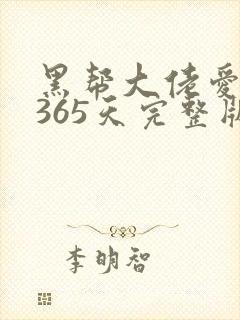 黑帮大佬爱
365天完整版
李明智